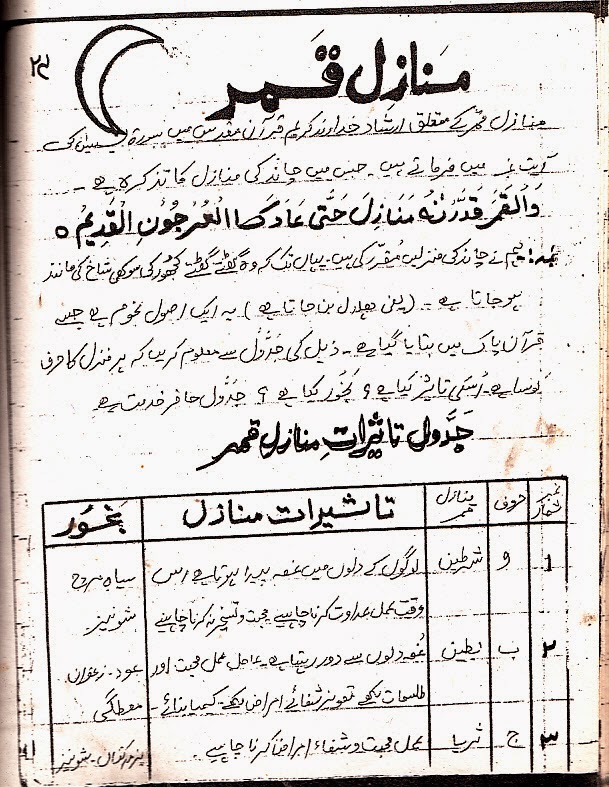 ۲۴
منازل قمر
منازل قمر کے متعلق ارشاد خداوند کریم قرآن مقدس میں سورۃ یٰسین کی
آیت میں فرماتے ہیں۔ جس میں چاند کی منازل کا تذکرہ ہے۔
وَالْقَمَرَ قَدَّرْنٰهُ مَنَازِلَ حَتّٰى عَادَ كَالْعُرْجُوْنِ الْقَدِيْمِ ٥
ہم نے چاند کی منزلیں مقرر کی ہیں۔ یہاں تک کہ وہ گھٹتے گھٹتے کھجور کی سوکھی شاخ کی مانند
ہو جاتا ہے۔ (یعنی ہلال بن جاتا ہے) یہ ایک اصول نجوم ہے جسے
قرآن پاک میں بتایا گیا ہے۔ ذیل کی جدول سے معلوم کریں کہ ہر منزل کا حرف
کونسا ہے۔ اسکی تاثیر کیا ہے؟ بخور کیا ہے؟ جدول حاضر خدمت ہے
جدول تاثیرات منازل قمر
نمبر شمار حروف منازل قمر تاثیرات منازل بخور
۱ شرطین لوگوں کے دلوں میں غصہ پیدا ہوتا ہے اس سیاہ مرچ
وقت عمل عداوت کرنا چاہیے محبت و تسخیر نہ کرنا چاہیئے شونیز
۲ ب بطین غصہ دلوں سے دور رہتا ہے۔ عامل عمل محبت اور عود۔ زعفران
طلسمات لکھے تعویز شفائے امراض لکھے۔ کیمیا بنائے۔ مصطگی
۳ ج ثریا عمل محبت و شفاء امراض کرنا چاہیے۔ شونیز